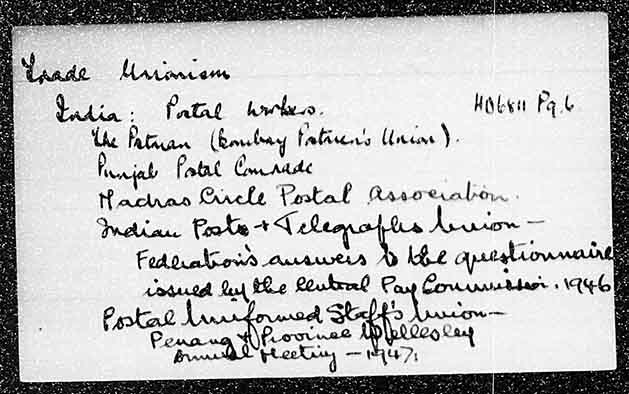 Trade Unionism
India: Postal Workers. HD6811 Pg.6
The Postman (Bombay Postmen's Union).
Punjab Postal Comrade
Madras Circle Postal Association.
Indian Posts & Telegraphs Union —
Federation's answers to the questionnaire
issued by the Central Pay Commission. 1946
Postal Uniformed Staff's Union —
Penang & Province Wellesley
Annual Meeting — 1947.